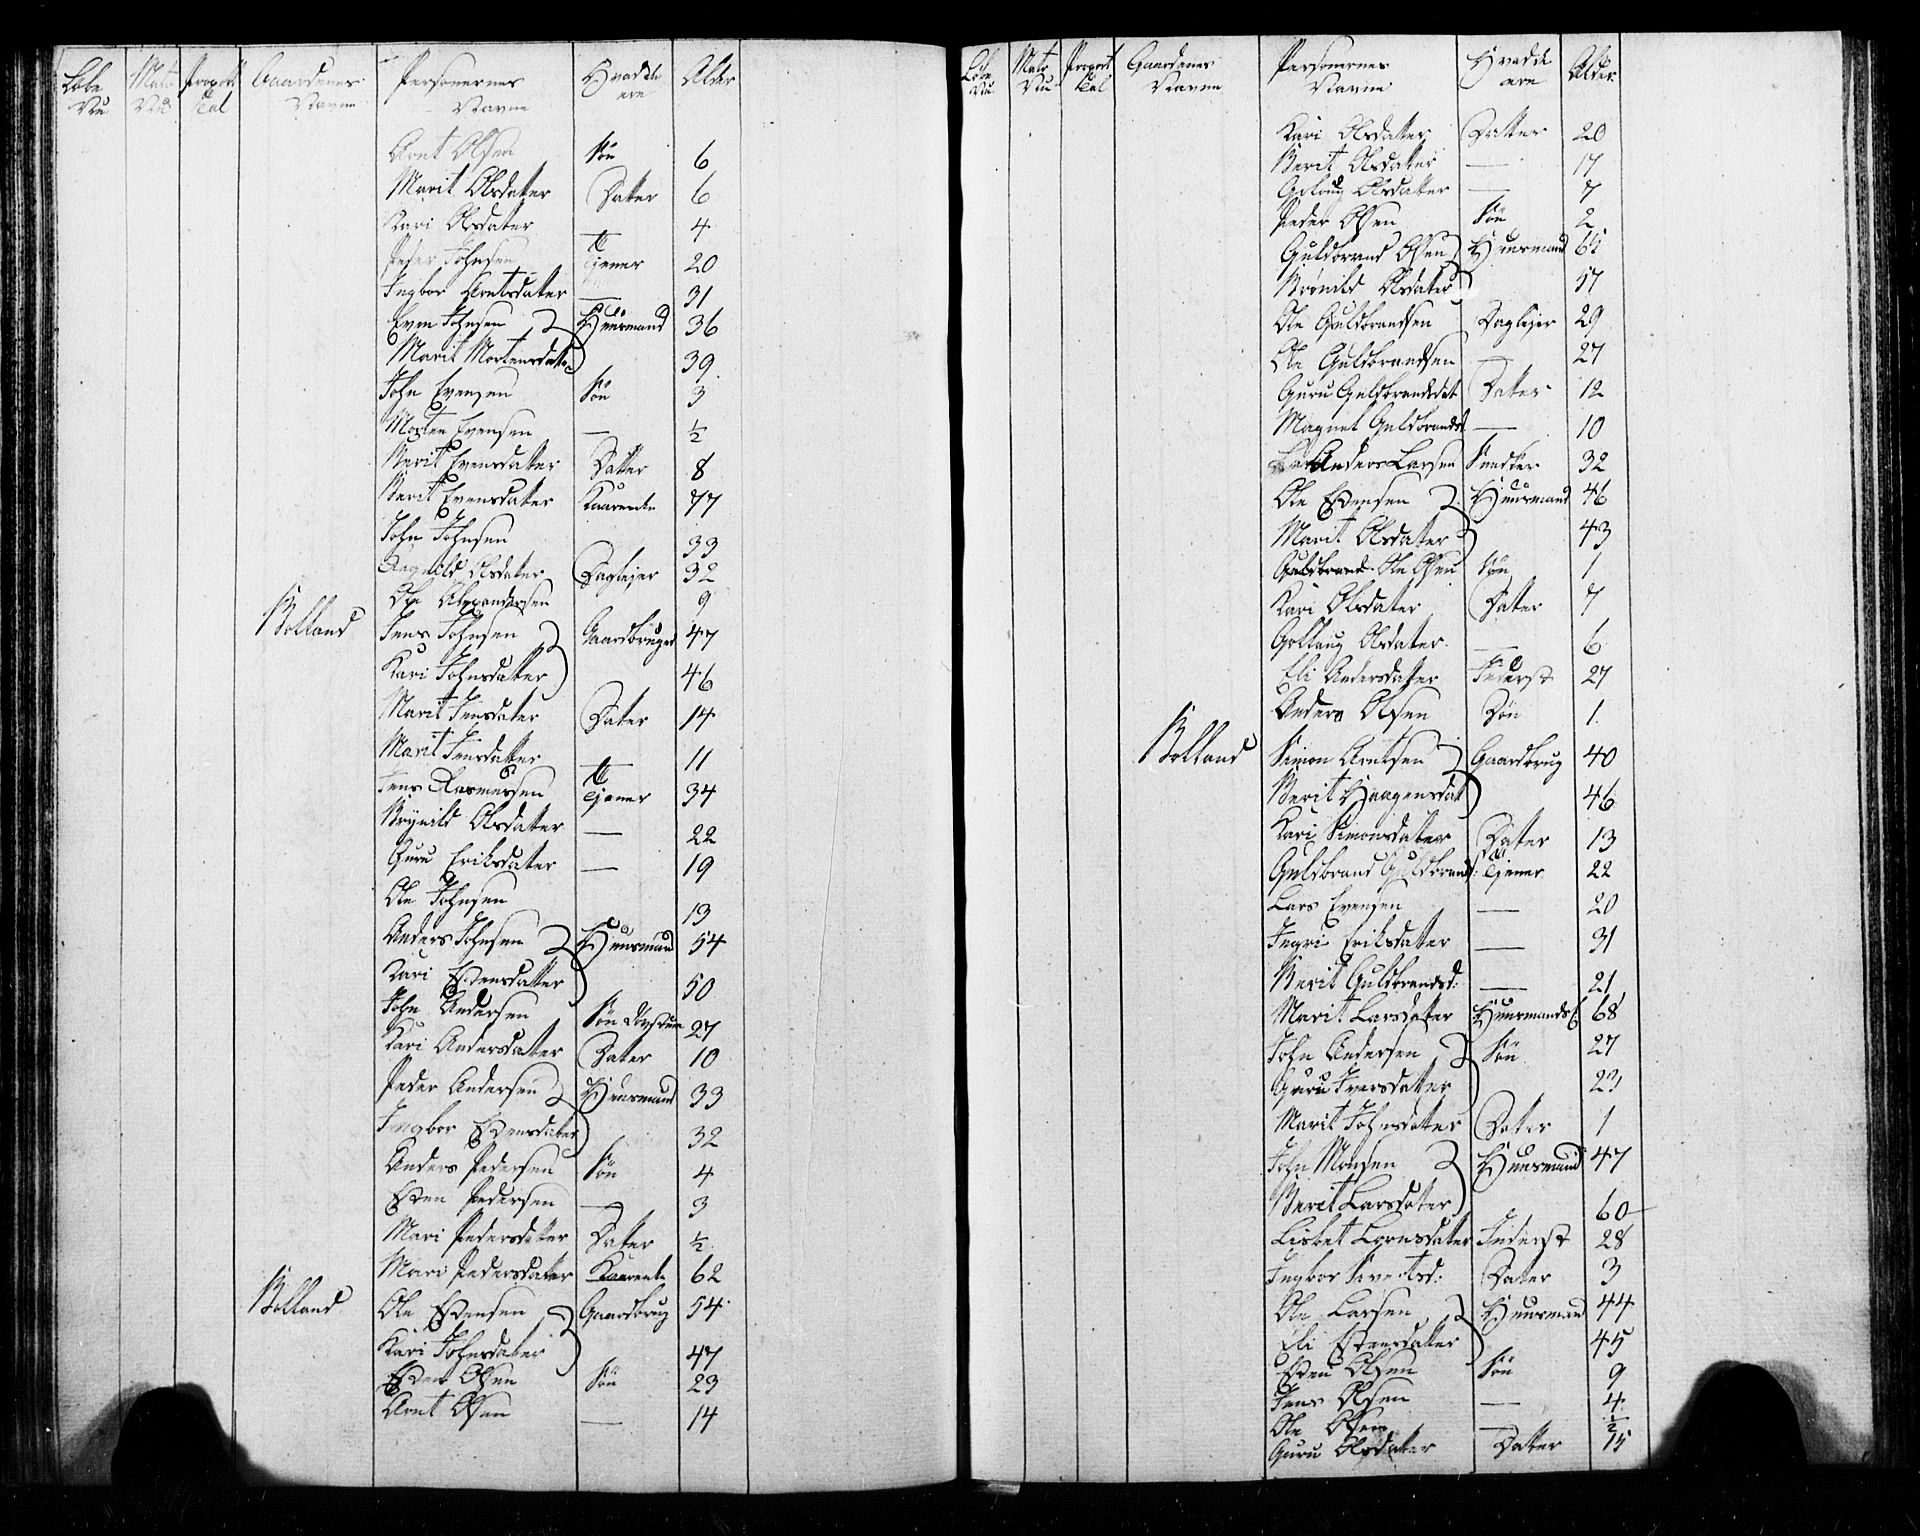 Løbe Nu. Matr Nu Proport Tal Gaardenes Navne Personernes Navne Hvad de ere Alder
Arnt Olsen Søn 6
Marit Olsdatter Datter 6
Kari Olsdater — 4
Peder Johnsen Tjener 20
Ingbor Arntsdater — 31
Even Johnsen Huusmand 36
Marit Mortensdater 39
John Evensen Søn 3
Morten Evensen — ½
Berit Evensdatter Datter 8
Berit Evensdater Kaarente 77
John Johnsen 33
Ragnild Olsdater Daglejer 32
Ole Alexandersen 9
Bolland Jens Johnsen Gaardbruger 47
Kari Johnsdatter 46
Marit Jensdater Dater 14
Marit Jensdatter — 11
Jens Rasmussen Tjener 34
Brynild Olsdatter — 22
Guru Eriksdater — 19
Ole Johnsen 13
Anders Johnsen Huusmand 54
Kari Estensdatter 50
John Andersen Søn 27
Kari Andersdatter Dater 10
Peder Andersen Huusmand 33
Ingbor Estensdater 32
Anders Pedersen Søn 4
Esten Pedersen — 3
Mari Pedersdatter Dater ½
Mari Pedersdater Kaarente 62
Bolland Ole Estensen Gaardbrug 54
Kari Johnsdater 47
Esten Olsen Søn 23
Arnt Olsen — 14
Løbe Nu Matr Nu Proport Tal Gaardenes Navne Personernes Navne Hvad de ere Alder
Kari Olsdatter Datter 20
Berit Olsdatter — 17
Golaug Olsdatter — 7
Peder Olsen Søn 2
Guldbrand Olsen Huusmand 65
Brønild Olsdater 57
Ole Guldbrandsen Daglejer 29
Ole Guldbrandsen — 27
Guru Guldbrandsdat Dater 12
Magnet Guldbrandsd — 10
Anders Larsen Snedker 32
Ole Estensen Huusmand 46
Marit Olsdatter 43
Guldbrand Ole Olsen Søn 1
Kari Olsdater Dater 7
Gollaug Olsdater — 6
Eli Andersdatter Inderst 27
Anders Olsen Søn 1
Bolland Simon Arntsen Gaardbrug 40
Berit Haagensdat 46
Kari Simonsdater Dater 13
Guldbrand Guldbrands: Tjener 22
Lars Evensen — 20
Ingri Eriksdater — 31
Berit Guldbrandsd: — 21
Marit Larsdater Huusmands E 68
John Andersen Søn 27
Guru Iversdatter 23
Marit Johnsdatter Dater 1
John Monsen Huusmand 47
Berit Larsdater 60
Lisbet Larsdater Inderst 28
Ingbor Sivertsd: Dater 3
Ole Larsen Huusmand 44
Eli Estensdatter 45
Esten Olsen Søn 9
Jens Olsen — 4
Ole Olsen — ½
Guru Olsdatter Datter 15